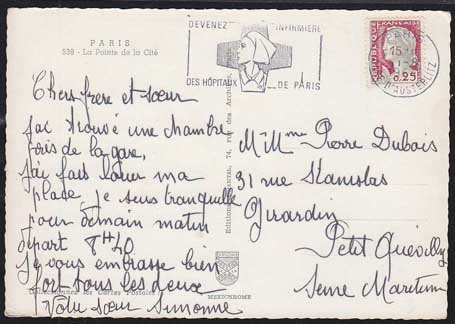 PARIS
538 - La Pointe de la Cité
DEVENEZ INFIRMIÈRE
DES HÔPITAUX DE PARIS
REPUBLIQUE FRANÇAISE
0,25
PARIS
15
D'AUSTERLITZ
Chers frere et sœur
j'ai trouvé une chambre
près de la gare,
j'ai fais louer ma
place je suis tranquille
pour demain matin
départ 8H40
je vous embrasse bien
fort tous les deux
Votre sœur Simonne
M. Mme Pierre Dubois
31 rue Stanislas
Girardin
Petit Quevilly
Seine Maritime
Editions 74, rue des
les Cartes Postales
MEXICHROME